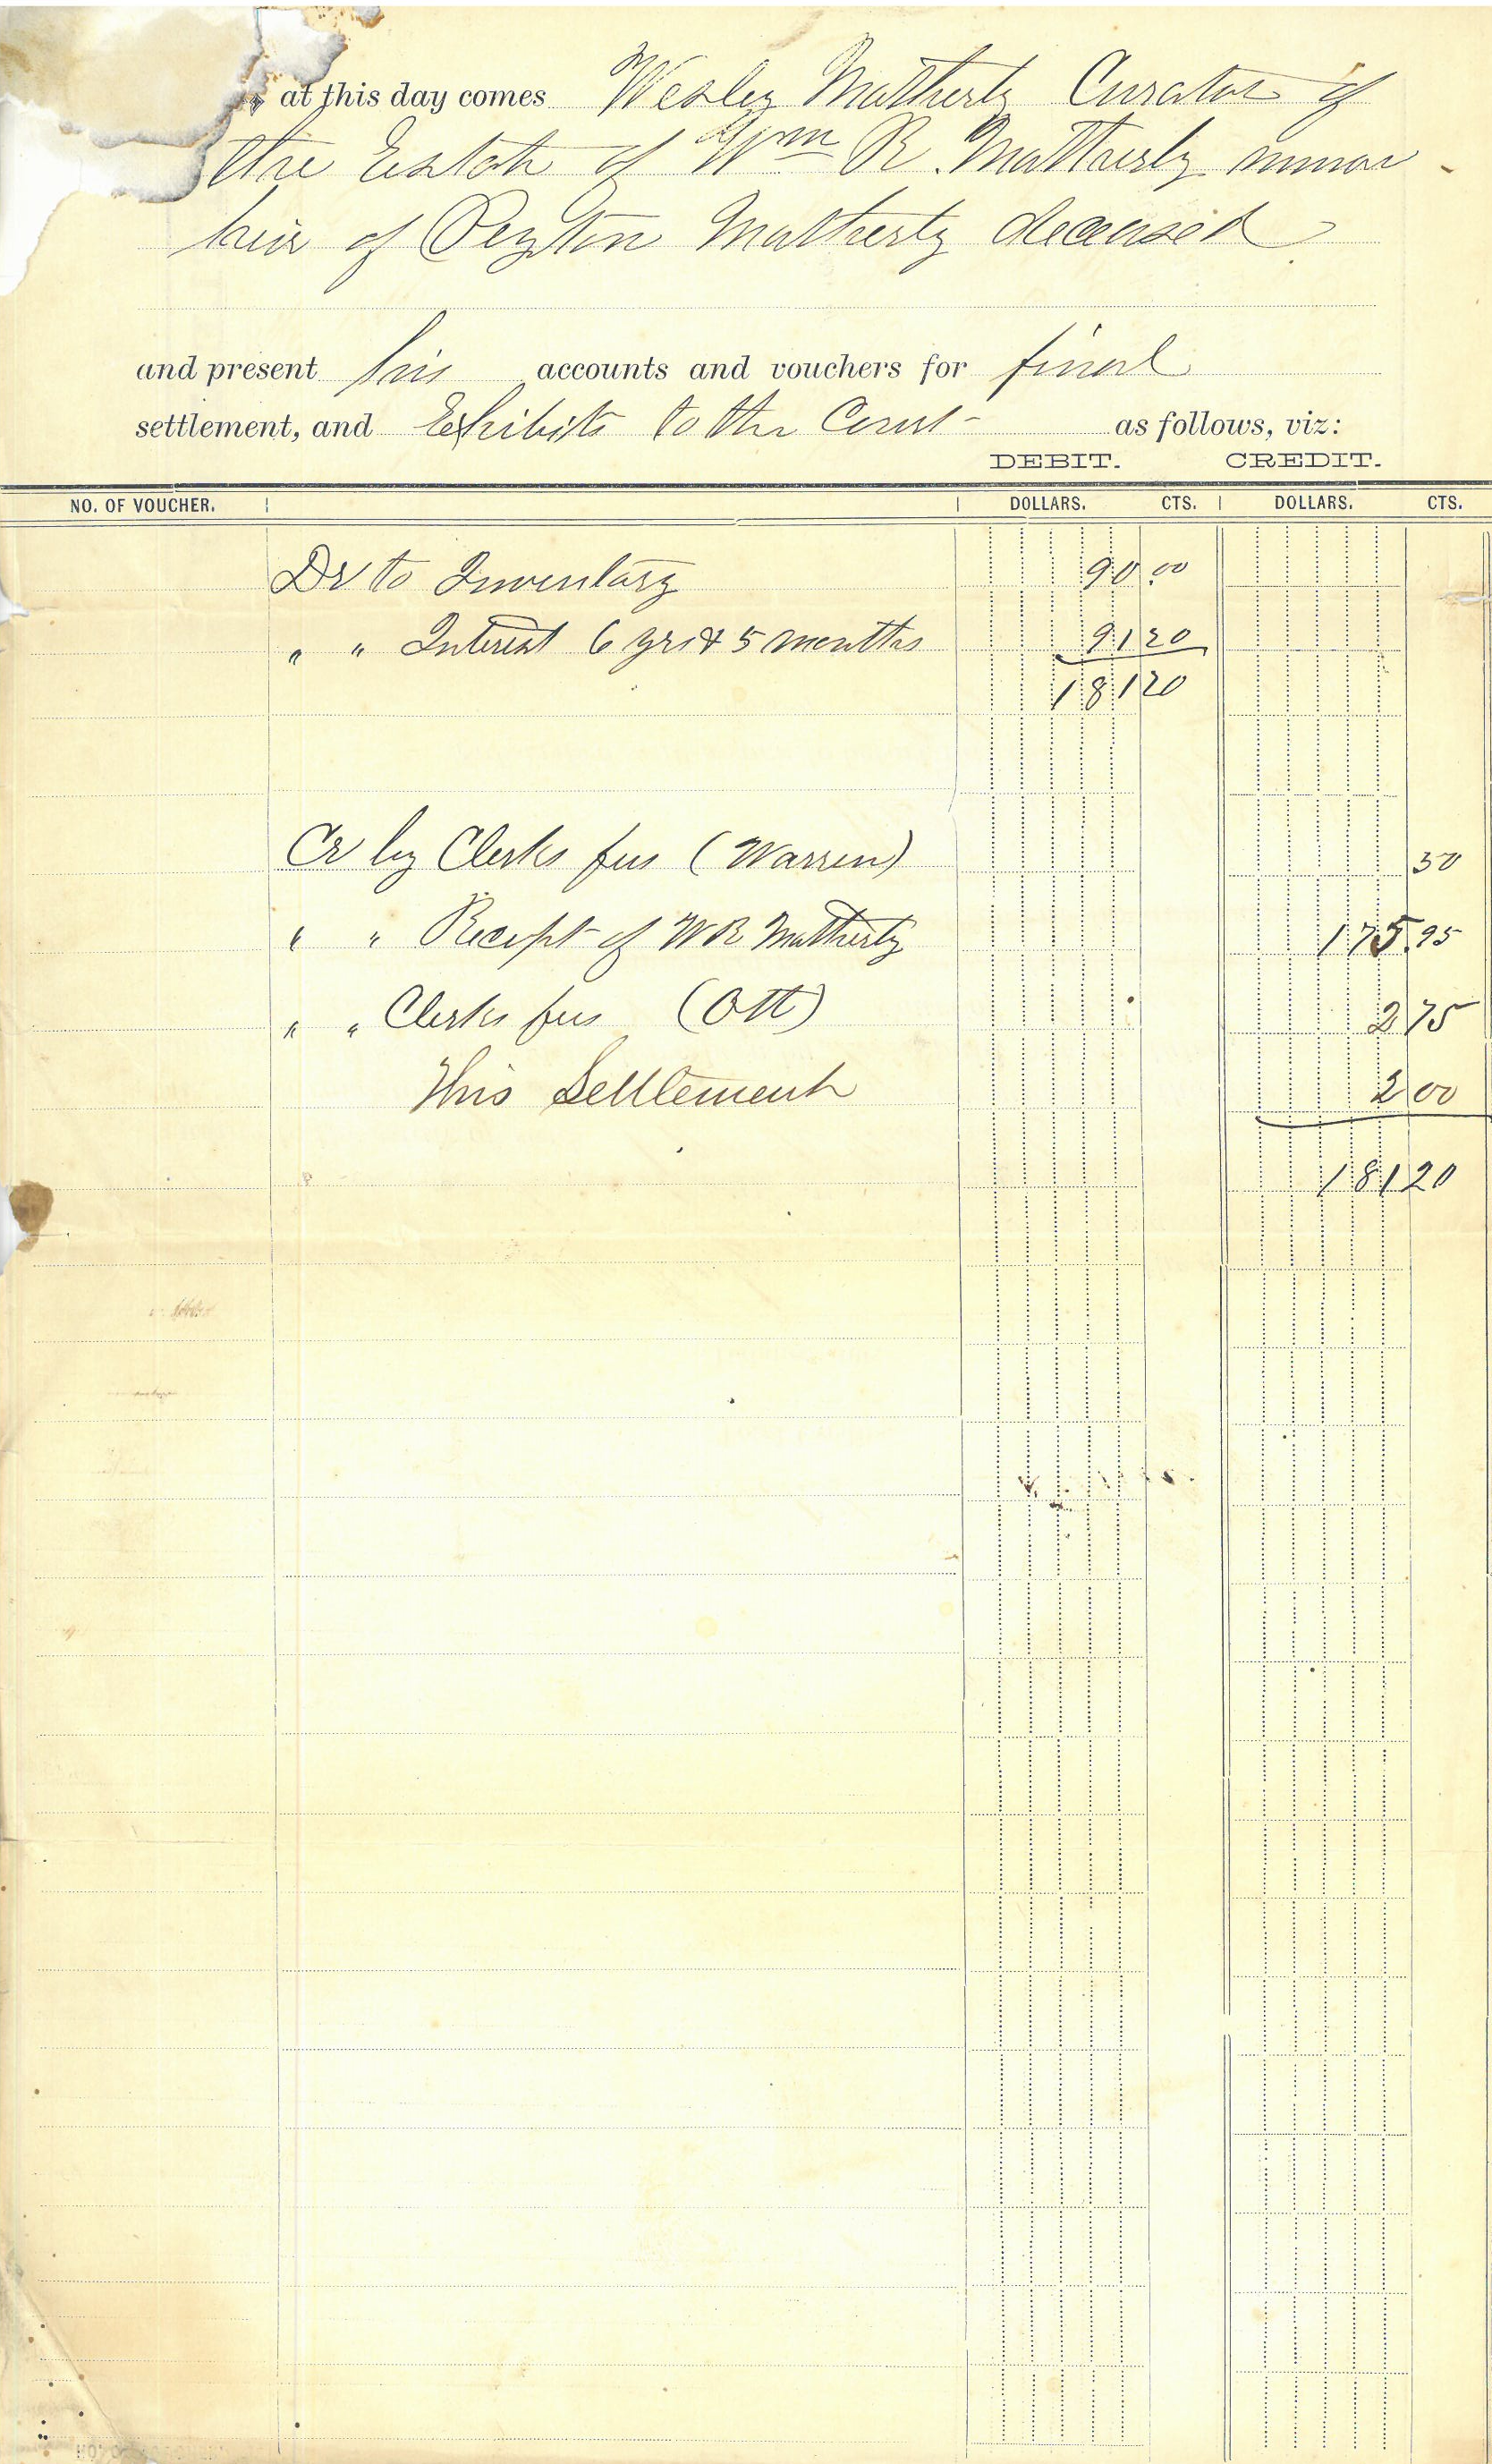 at this day comes Wesley Mattherly Curator of
the Estate of Wm R. Mattherly minor
heir of Peyton Mattherly deceased
and present his accounts and vouchers for final
settlement, and Exhibits to the Court as follows, viz:
DEBIT. CREDIT.
NO. OF VOUCHER. DOLLARS. CTS. DOLLARS. CTS.
Dr to Inventory 90.00
" " Interest 6 yrs & 5 months 91 20
181 20
Cr by Clerks fees (Warren) 50
" " Receipt of W R Mattherly 175.95
" " Clerks fees (Ott) 2 75
This Settlement 2 00
181 20